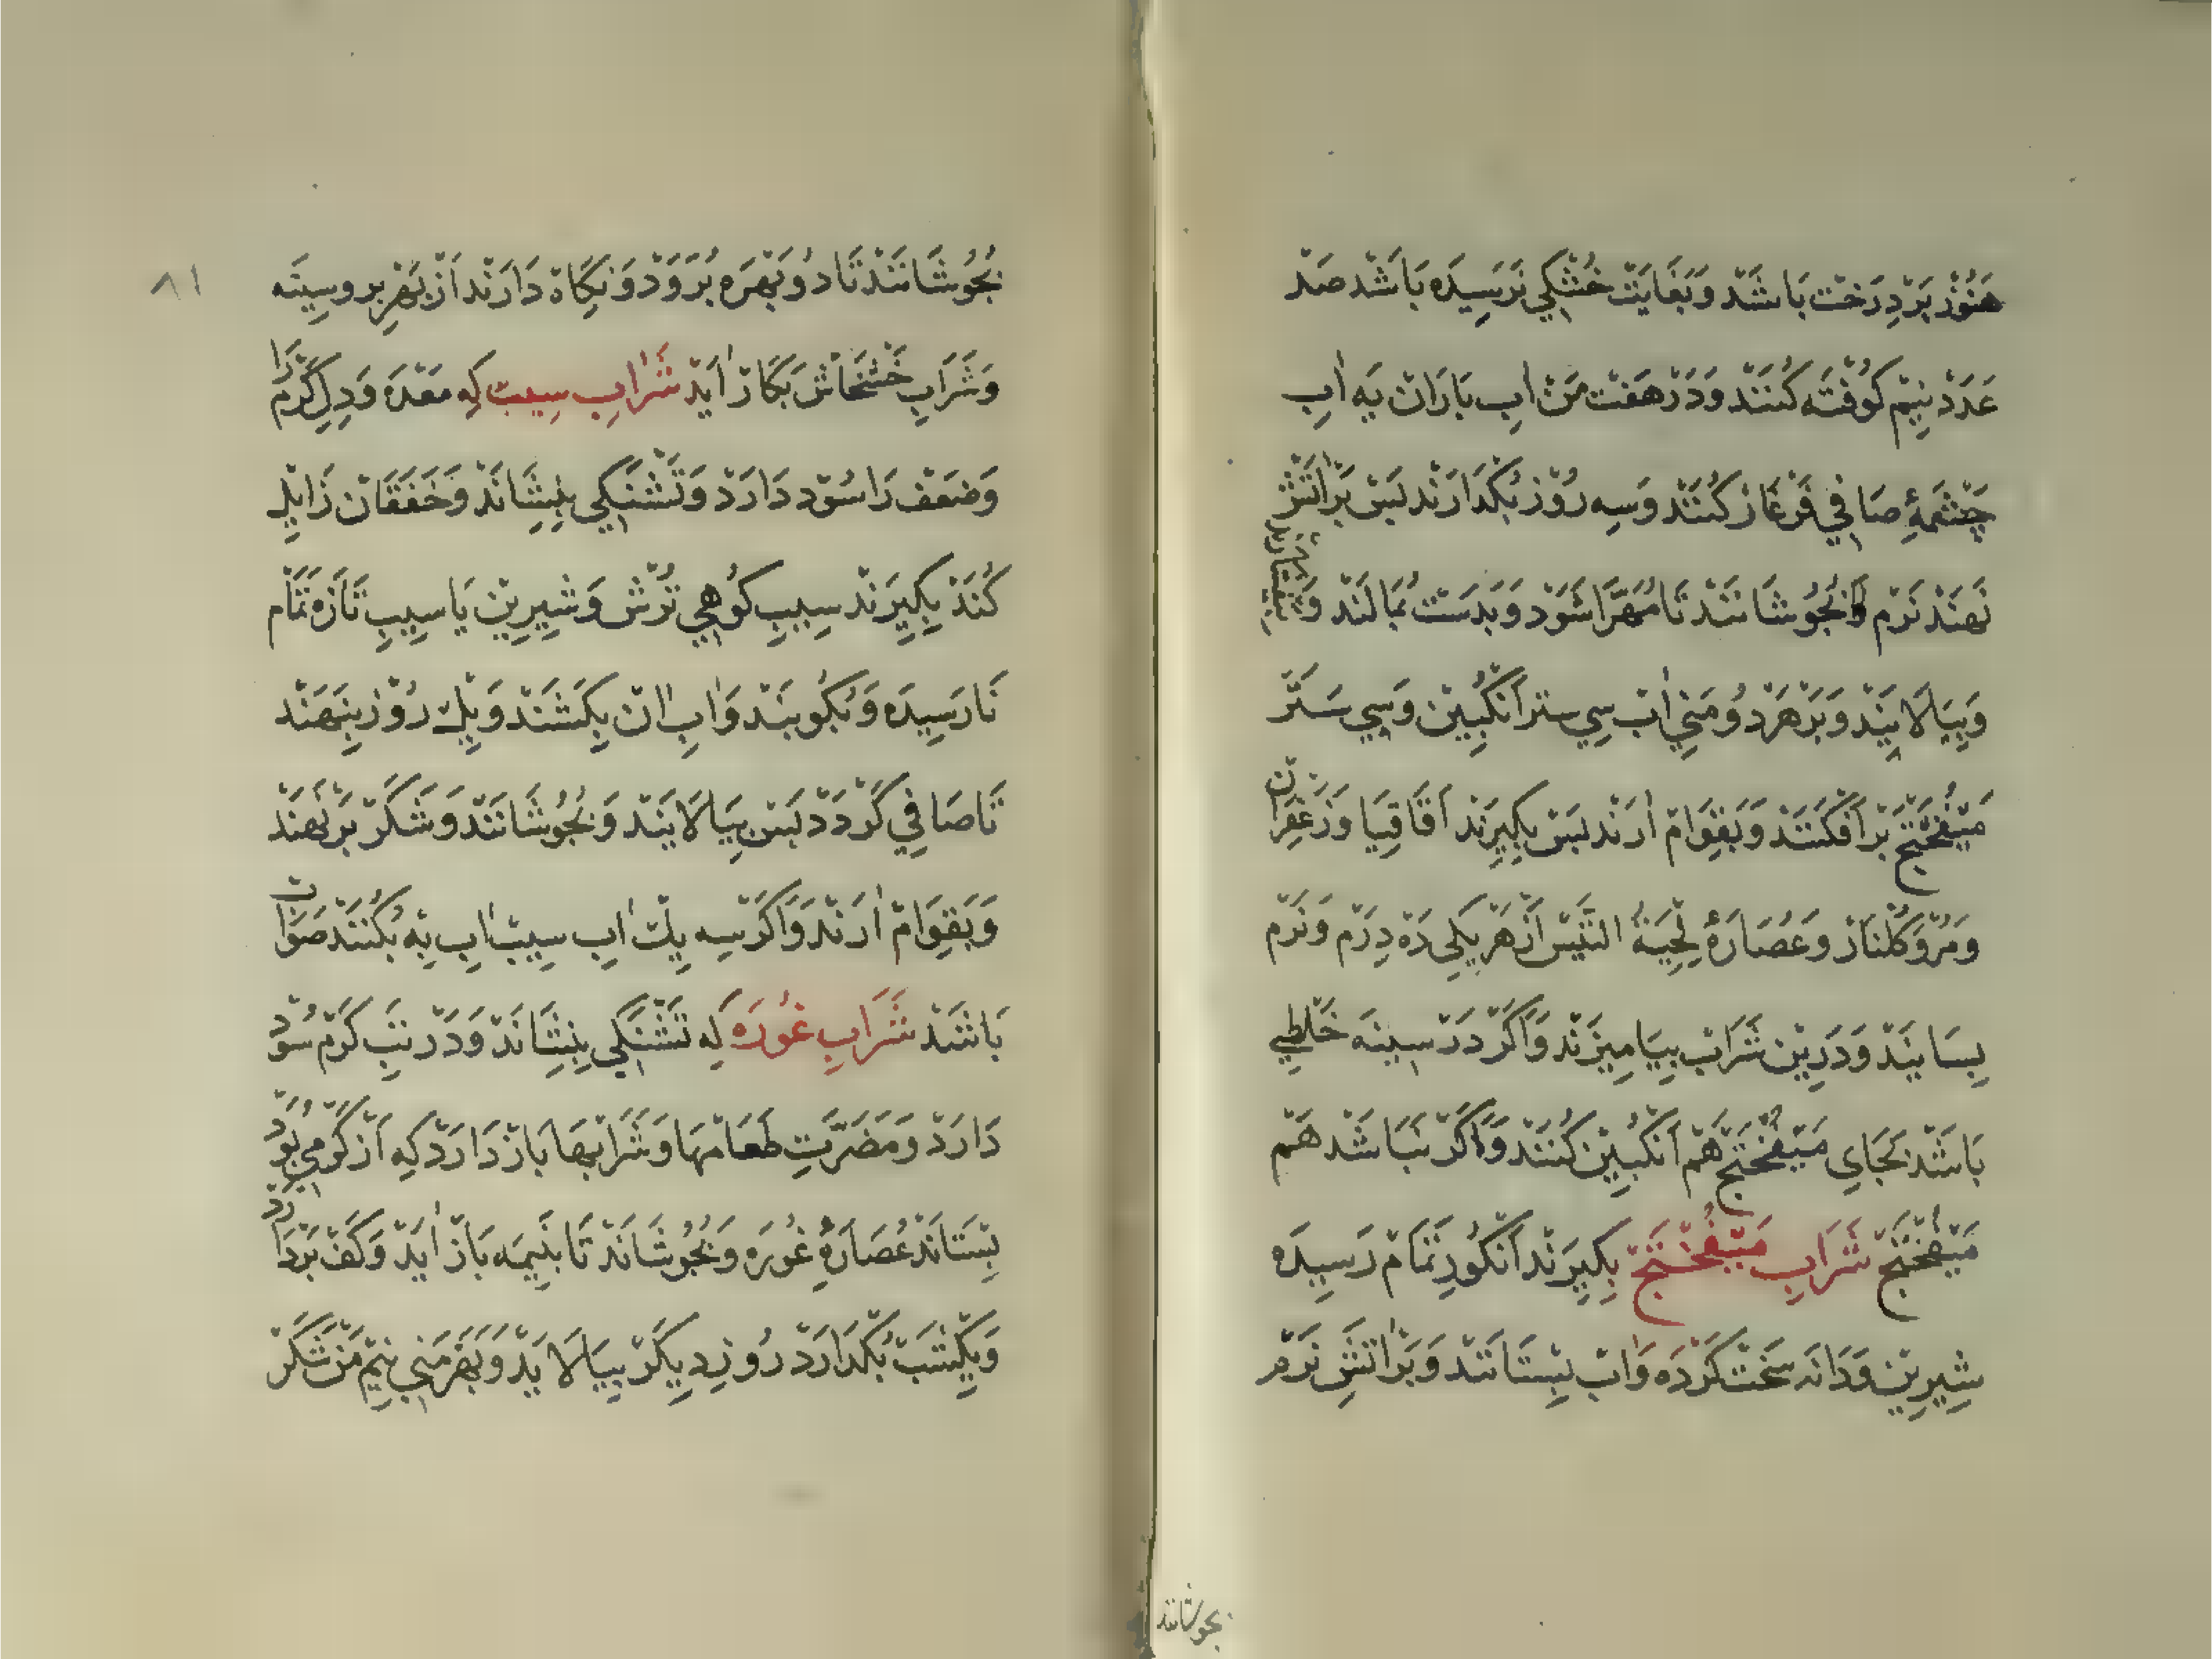 هَنُوْز بَرْ دِرَخت بَاشَدْ وَبَغَايَتْ خُشْكِي نَرَسِيدَه بَاشَد صَدْ
عَدَدْ نِيْم كُوفْتَه كُنَنْد وَدَرْ هَفت مَنْ اٰبِ بَارَانْ يَه اٰبِ
چَشْمَهٔ صَافِي فَرْغَار كُنَنْد وَسِه رُوْز بُگذَارَنْد بَسْ بَرْ اٰتَشْ
نَهنَدْ نَرْم وَبجُوشَانَنْد تَا مُهَرَّا شَوَد وَبَدَسْت بُمَالَنْد وَبيفشَارَند
وَبِيَالَايَنِد وَبَرْ هَرْ دُومَنِي اٰبْ سِي ستر اَنْگبِيْن وَسِي سَتَرْ
مَيْفُخْتَجْ بَرْ اَفْگَنَنْد وَبَقِوَامْ اٰرَنْد بَسْ بِكِيرَنْد اَقَاقِيَا وَزَعْفَرَان
وَمُرّ وَگُلْنَارْ وَعُصَارَهٔ لِحْيَةُ التَّيْس اَزْ هَرْيَكِي دَه دِرَمْ وَنَرْم
بِسَايَنَدْ وَدَرِيْن شَرَابْ بِيَامِيْزَنْد وَاگَرْ دَرْ سِينَه خَلْطِي
بَاشَدْ بَجَاىِ مَيْفُخْتَجْ هَمْ اَنْگبِيْن كُنَنْد وَاگَرْ نَبَاشَد هَمْ
مَيْفُخْتَجْ شَرَابِ مَيْفُخْتَجْ بِكِيرَنْد اَنْگُورِ تَمَامْ رَسِيدَه
شِيرِيْن وَدَانَه سَخْت كَرْدَه وَاٰبْ بِسْتَانَنْد وَبَرْ اٰتَشِ نَرْم
بجوشانند
٨١
بجُوشَانَنْد تَا دُو بَهْرَه بُرَوَدْ وَنِگَاهْ دَارَنْد اَزْ بَهْرِ بروسِيْنَه
وَشَرَابِ خَشْخَاشْ بَكَارْ اٰيَدْ شَرَابِ سِيبْ كِه مَعْدَه وَدِلِ گَرْم رَا
وَضَعفْ رَا سُوْد دَارَدْ وَتَشْنَگِي بِنِشَانَدْ وَخَفَقَانْ زَايِل
كُنَدْ بِكِيرَنْد سِيبِ كُوهِي تُرْش وَشِيرِيْن يَا سِيبِ تَازَه تَمَام
نَارَسِيدَه وَبُكُوبَنْد وَاٰبِ اٰنْ بِكَشَنْد وَيِكْ رُوْز بِنَهَنْد
تَا صَافِي گَرْدَدْ بَسْ بِيَالَايَنْد وَبجُوشَانَنْد وَشَكَرْ بَرْ نَهنَد
وَبَقِوَامْ اٰرَنْد وَاگَرْ سِه يِكْ اٰبِ سِيبْ اٰبِ بِهْ بُكُنَنْد صَوَاب
بَاشَدْ شَرَابِ غُورَه كِه تَشْنَگِي بِنِشَانَدْ وَدَرْ تَبِ گَرْم سُوْد
دَارَدْ وَمَضَرَّتِ طَعَامْهَا وَشَرَابهَا بَازْ دَارَدْ كِه اَزْ گَرْمِي بُوَدْ
بِسْتَانَدْ عُصَارَهٔ غُورَه وَبجُوشَانَدْ تَا بَنِيمَه بَازْ اٰيَدْ وَكَفْ بَرْدَارَدْ
وَيِكْشَبْ بُگذَارَدْ رُوْزِ دِيگَرْ بِيَالَايَدْ وَبَهَرْ مَنِي نِيْم مَنْ شَكَرْ